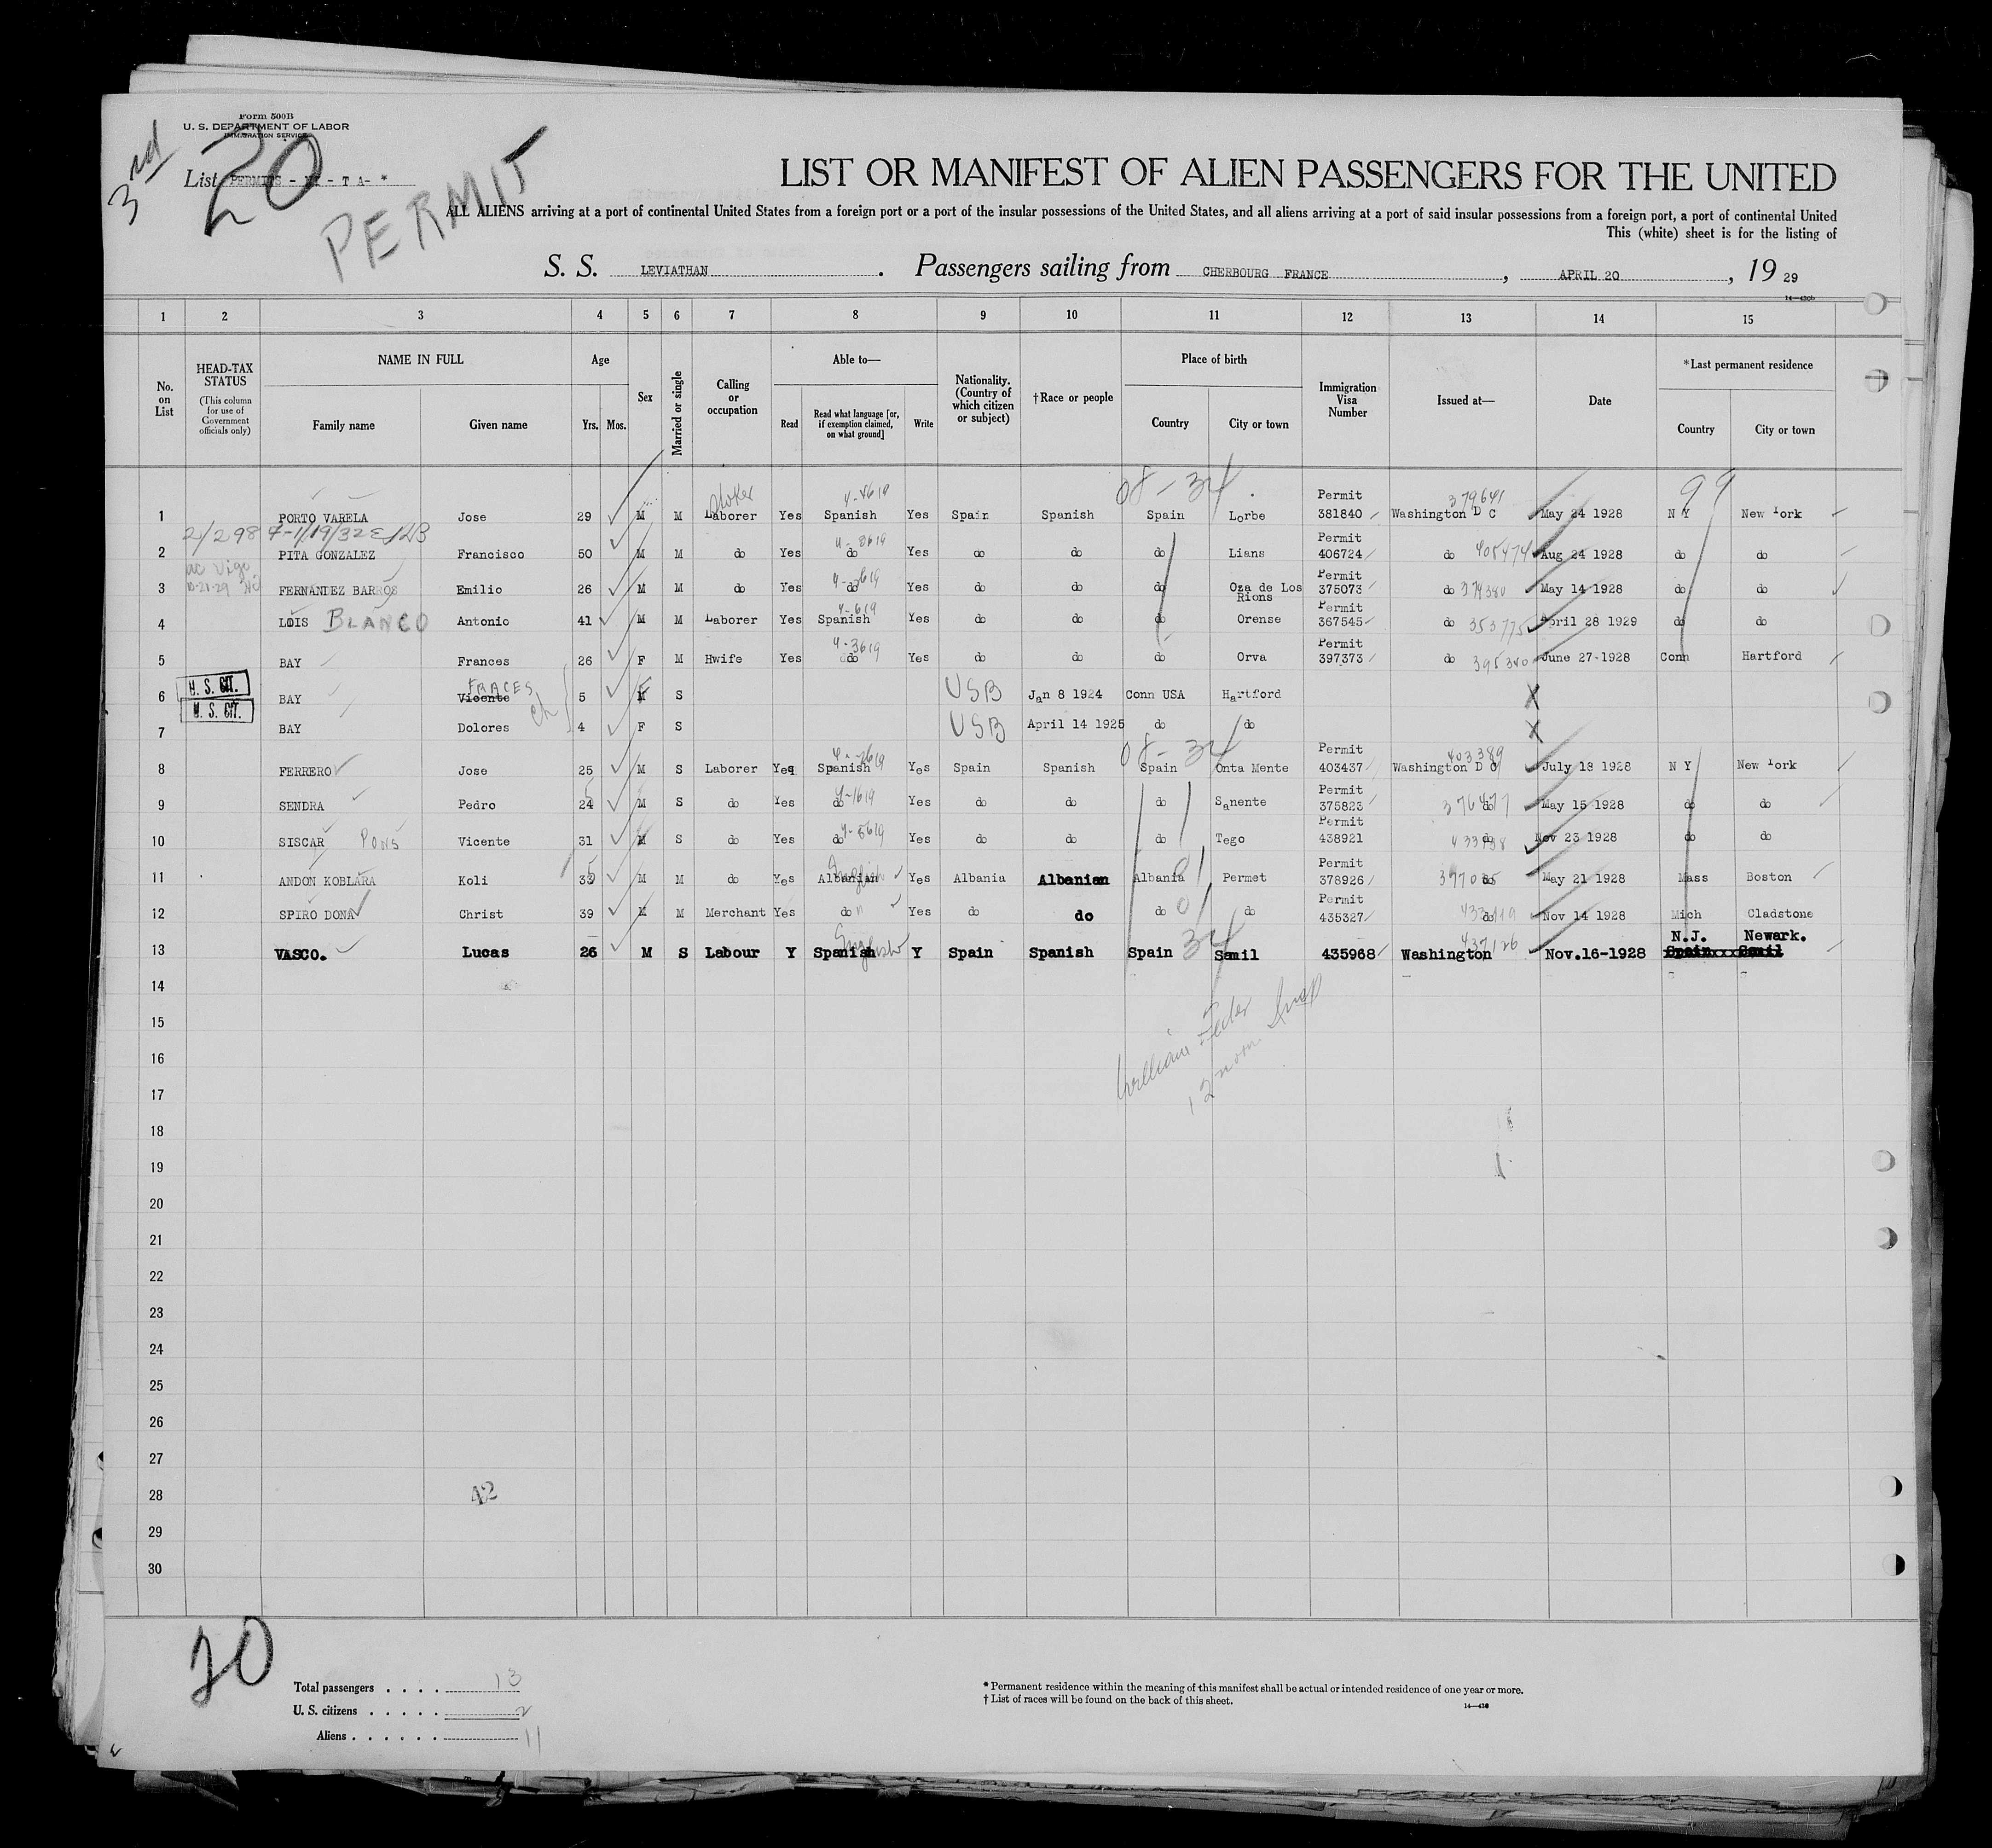 Form 500B
U. S. DEPARTMENT OF LABOR
IMMIGRATION SERVICE
3rd
20
PERMIT
List PERMITS - - T A- *
LIST OR MANIFEST OF ALIEN PASSENGERS FOR THE UNITED
ALL ALIENS arriving at a port of continental United States from a foreign port or a port of the insular possessions of the United States, and all aliens arriving at a port of said insular possessions from a foreign port, a port of continental United
This (white) sheet is for the listing of
S. S. LEVIATHAN. Passengers sailing from CHERBOURG FRANCE, APRIL 20, 19 29
14—430b
1 2 3 4 5 6 7 8 9 10 11 12 13 14 15
No. on List
HEAD-TAX STATUS
(This column for use of Government officials only)
NAME IN FULL
Family name Given name
Age
Yrs. Mos.
Sex
Married or single
Calling or occupation
Able to—
Read
Read what language [or, if exemption claimed, on what ground]
Write
Nationality. (Country of which citizen or subject)
†Race or people
Place of birth
Country City or town
Immigration Visa Number
Issued at—
Date
*Last permanent residence
Country City or town
08 - 34 99
stoker 379641
1 PORTO VARELA Jose 29 M M Laborer Yes Spanish Yes Spain Spanish Spain Lorbe Permit 381840 Washington D C May 24 1928 N Y New York
2 PITA GONZALEZ Francisco 50 M M do Yes do Yes do do do Lians Permit 406724 do 405474 Aug 24 1928 do do
3 FERNANDEZ BARROS Emilio 26 M M do Yes do Yes do do do Oza de Los Rions Permit 375073 do 374380 May 14 1928 do do
4 LOIS BLANCO Antonio 41 M M Laborer Yes Spanish Yes do do do Orense Permit 367545 do 353775 April 28 1929 do do
5 BAY Frances 26 F M Hwife Yes do Yes do do do Orva Permit 397373 do 395340 June 27-1928 Conn Hartford
U. S. CIT.
FRACES
6 BAY Vicente 5 M S USB Jan 8 1924 Conn USA Hartford X
U. S. CIT.
ch
7 BAY Dolores 4 F S USB April 14 1925 do do X
08 - 34 403389
8 FERRERO Jose 25 M S Laborer Yes Spanish Yes Spain Spanish Spain Onta Mente Permit 403437 Washington D C July 18 1928 N Y New York
9 SENDRA Pedro 24 M S do Yes do Yes do do do Sanente Permit 375823 do May 15 1928 do do
10 SISCAR PONS Vicente 31 M S do Yes do Yes do do do Tego Permit 438921 do Nov 23 1928 do do
11 ANDON KOBLARA Koli 33 M M do Yes Albanian Yes Albania Albanian Albania Permet Permit 378926 do May 21 1928 Mass Boston
12 SPIRO DONA Christ 39 M M Merchant Yes do Yes do do do do Permit 435327 do Nov 14 1928 Mich Cladstone
English 34 437126 N.J. Newark.
13 VASCO. Lucas 26 M S Labour Y Spanish Y Spain Spanish Spain Samil 435968 Washington Nov.16-1928 Spain Samil
14
15
16
17
18
19
20
21
22
23
24
25
26
27
28
29
30
42
20
Total passengers . . . . 13
U. S. citizens . . . . . 2
Aliens . . . . . . 11
* Permanent residence within the meaning of this manifest shall be actual or intended residence of one year or more.
† List of races will be found on the back of this sheet.
14—430